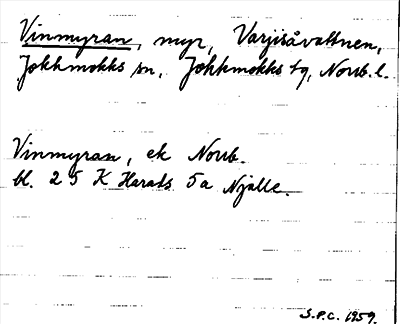 Vinmyran, myr, Varjisåvattnen,
Jokkmokks sn, Jokkmokks tg, Norrb. l.
Vinmyran, ek Norrb.
bl. 25 K Harads 5a Njalle.
S.P.C. 1959.